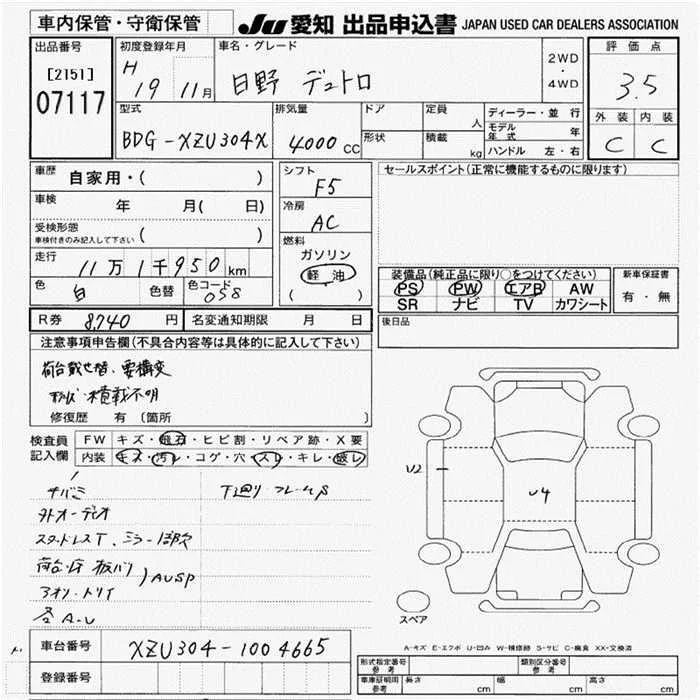 車内保管・守衛保管
JU 愛知 出品申込書 JAPAN USED CAR DEALERS ASSOCIATION
出品番号
[2151]
07117
初度登録年月
H 19 11月
車名・グレード
日野 デュトロ
2WD
・
4WD
評価点
3.5
外装 内装
C C
型式
BDG-XZU304X
排気量
4000 CC
ドア
形状
定員
人
積載
kg
ディーラー・並行
モデル年式 年
ハンドル 左・右
車歴
自家用・( )
車検
年 月( 日)
受検形態
車検付きのみ記入して下さい ( )
走行
11万1千950km
色
白
色替
色コード
058
シフト
F5
冷房
AC
燃料
ガソリン
軽油
( )
セールスポイント(正常に機能するものに限ります)
装備品(純正品に限り○をつけてください)
PS PW エアB AW
SR ナビ TV カワシート
新車保証書
有・無
後日品
R券 8,740 円
名変通知期限 月 日
注意事項申告欄(不具合内容等は具体的に記入して下さい)
荷台載せ替、要構変
形状・積載不明
修復歴 有 〔箇所 〕
検査員
記入欄
FW キズ・飛石・ヒビ割・リペア跡・X要
内装 キズ・汚レ・コゲ・穴・スレ・キレ・破レ
サバミ
外オーディオ
スタッドレスT、ミラー1部欠
荷台・床 板バリ
アオリ・トリイ
AUSP
各A・U
下廻り フレームS
U2
U4
スペア
A-キズ E-エクボ U-凹み W-補修跡 S-サビ C-腐食 XX-交換済
車台番号 XZU304-1004665
登録番号
形式指定番号
参考
類別区分番号
参考
車庫証明用
参考
長さ cm 幅 cm 高さ cm